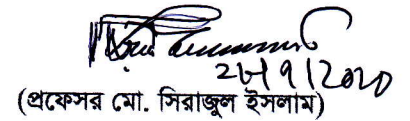 ২৮/৭/২০২০
(প্রফেসর মো. সিরাজুল ইসলাম)